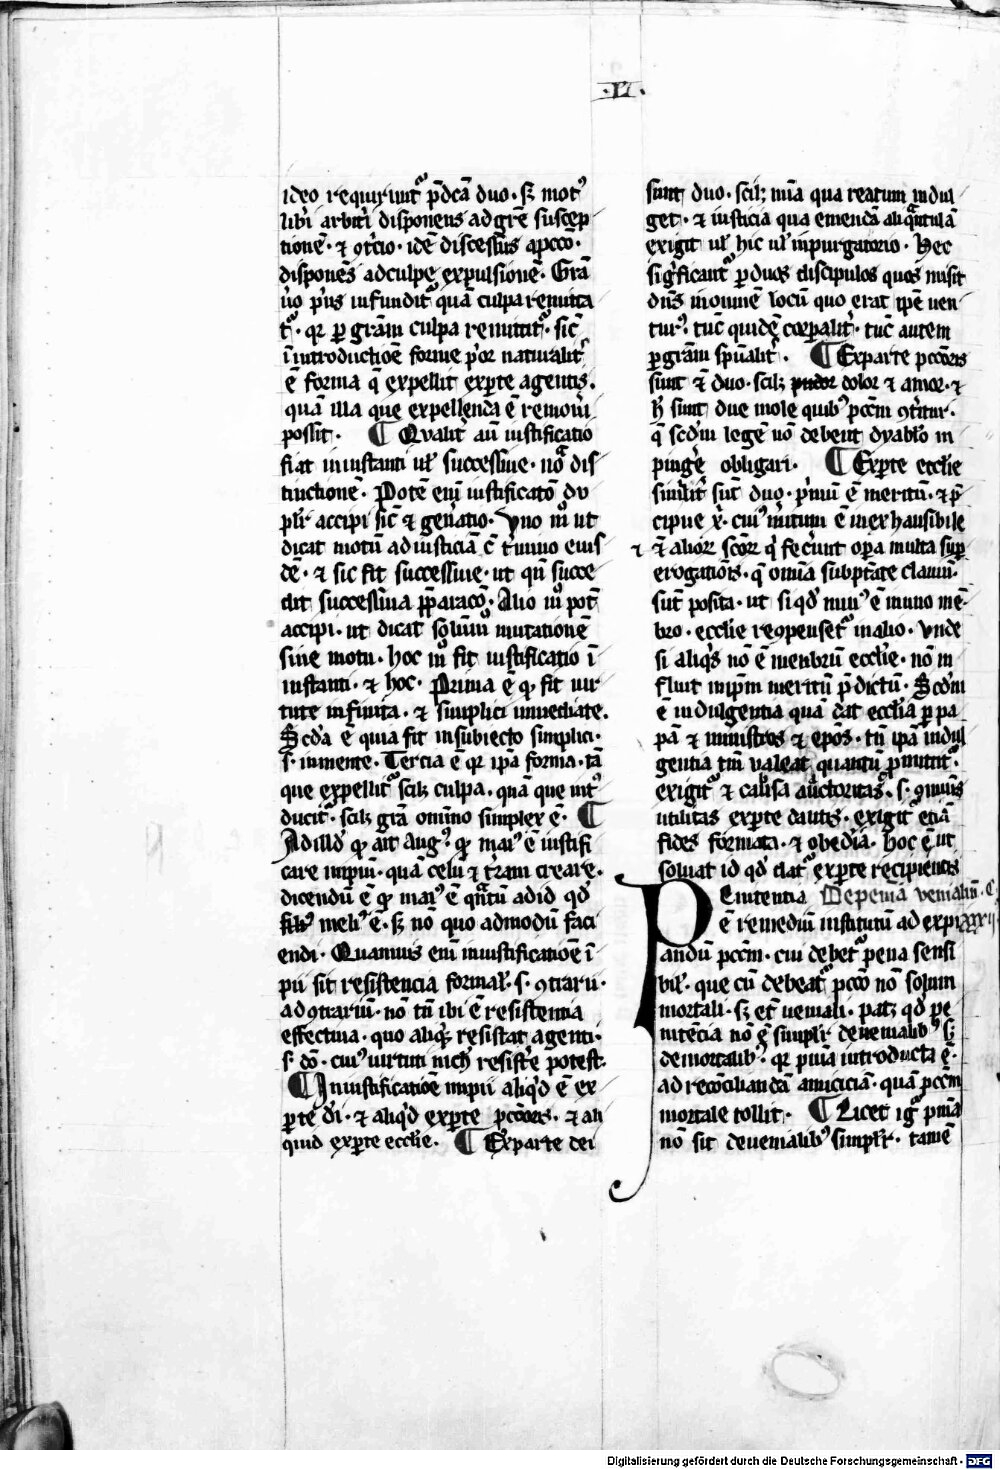 ·VI·
ideo requirunt᷑ p̄dcā duo· sꝫ motꝰ
libi arbitͥ disponens ad grē suscep
tionē· ⁊ ꝯrͨio· idē discessus a pccō·
disponēs ad culpe expulsionē· Grā
u̾o pͥus infundit᷑ quā culpa remitta
t᷑· qr ꝑ grām culpa remittit᷑· sic̄
ī introductiōe forme pͥor naturalit̾
ē forma q̄ expellit exꝑte agentis·
quā illa que expellenda ē remou̾i
possit· ¶ Qualit̾ aūt iustificatio
fiat in instanti ul̾ successiue· no᷑ dis
tinctionē· Potē enī iustificatō du
plr̾ accipi sic̄ ⁊ gen̾atio· Uno mͦ ut
dicat motū ad iusticiā c̄ t̾mino eius
dē· ⁊ sic fit successiue· ut qn̄ succe
dit successiua p̄paracō· Alio mͦ pot̄
accipi· ut dicat solūm̄ mutationē
sine motu· hoc mͦ fit iustificatio ī
instanti· ⁊ hoc· Prima ē qꝫ fit uir
tute infinita· ⁊ simplici inmediate·
Scd̾a ē quia fit in subiecto simplici·
s· in mente· Tercia ē qr ip̄a forma· tā
que expellit᷑ scilꝫ culpa· quā que int̾
ducit᷑· scilꝫ grā omīno simplex ē· ¶
Ad illd̾ qꝫ ait Augꝰ· qꝫ maiꝰ ē iustifi
care impiū· quā celū ⁊ t̾rām creare·
dicendū ē qꝫ maiꝰ ē q̄ntū ad id qd̾
meliꝰ ē· sꝫ nō quo ad modū faci
endi· Quamuis enī in iustificatiōe ī
pii sit resistencia formal̾· s· ꝯtrarii·
ad ꝯtrariū· nō tn̄ ibi ē resistentia
effectiua· quo aliqͥd̾ resistat agenti·
s· dō· cuiꝰ uirtuti nich̾ resist̾e potest·
¶ In iustificatiōe impii aliqͥd ē ex
ꝑte dei· ⁊ aliqͥd exꝑte pccōris· ⁊ ali
quid exꝑte ecclie· ¶ Ex parte dei
sunt duo· scilꝫ mīa qua reatum indul
get· ⁊ iusticia qua emendā aliq̄ntulā
exigit ul̾ hic ul̾ in purgatorio· Hec
sig̾ficant᷑ ꝑ duos discipulos quos misit
dn̄s in omnē locū quo erat ip̄e uen
turꝰ· tūc quidē corꝑalit̾· tūc autem
ꝑ grām spūalit̾· ¶ Ex parte pccōris
sunt ēt duo· scilꝫ pudor dolor ⁊ amor· ⁊
h̾ sunt due mole quibꝰ pccm ꝯt̾itur·
q̄ scdm legē nō debent dyabͦlo in
pingͤre obligari· ¶ Exꝑte ecclie
similit̾ sūt duo· pͥmū ē meritū· ⁊ p̄
cipue x̄· cuiꝰ m̾itum ē inexhausibile
⁊ ēt alioꝝ scōꝝ qͥ fec̾unt oꝑa multa suꝑ
erogatiōis· q̄ omīa sub ptāte clauiū·
sūt posita· ut si qd̾ minꝰ ē in uno mē
bro· ecclie reꝯpenset᷑ in alio· Unde
si aliqͥs nō ē menbrū ecclie· nō in
fluit in ip̄m meritū p̄dictū· Scdm
ē indulgentia quā dat ecclīa ꝑ pa
pā ⁊ ministros ⁊ epōs· tn̄ ip̄ā indul
gentia tm̄ ualeat quantū ꝓmittit᷑·
exigit᷑ ⁊ causa auctoritas· s· ꝯmūis
utilitas exꝑte dantis· exigit᷑ etiā
fides formata· ⁊ obediā· hoc ē ut
soluat id qd̾ dat᷑ exꝑte recipientis
Penitentia De penīa venialiū· C.
ē remediū institutū ad expi xxxii
andū pccm· cui debet᷑ pena sensi
bil̾· que cū debeat᷑ pccō nō solum
mortali· sꝫ et̄ ueniali· patꝫ qd̾ pe
nitēcia nō ē simplr̾ de uenialibꝰ sꝫ
de mortalibꝰ· qr pnīa introducta ē·
ad reconciliandā amiciciā· quā pccm
mortale tollit· ¶ Licet igͥ pnīa
nō sit de uenialibꝰ simplr̾· tamē
Digitalisierung gefördert durch die Deutsche Forschungsgemeinschaft · DFG